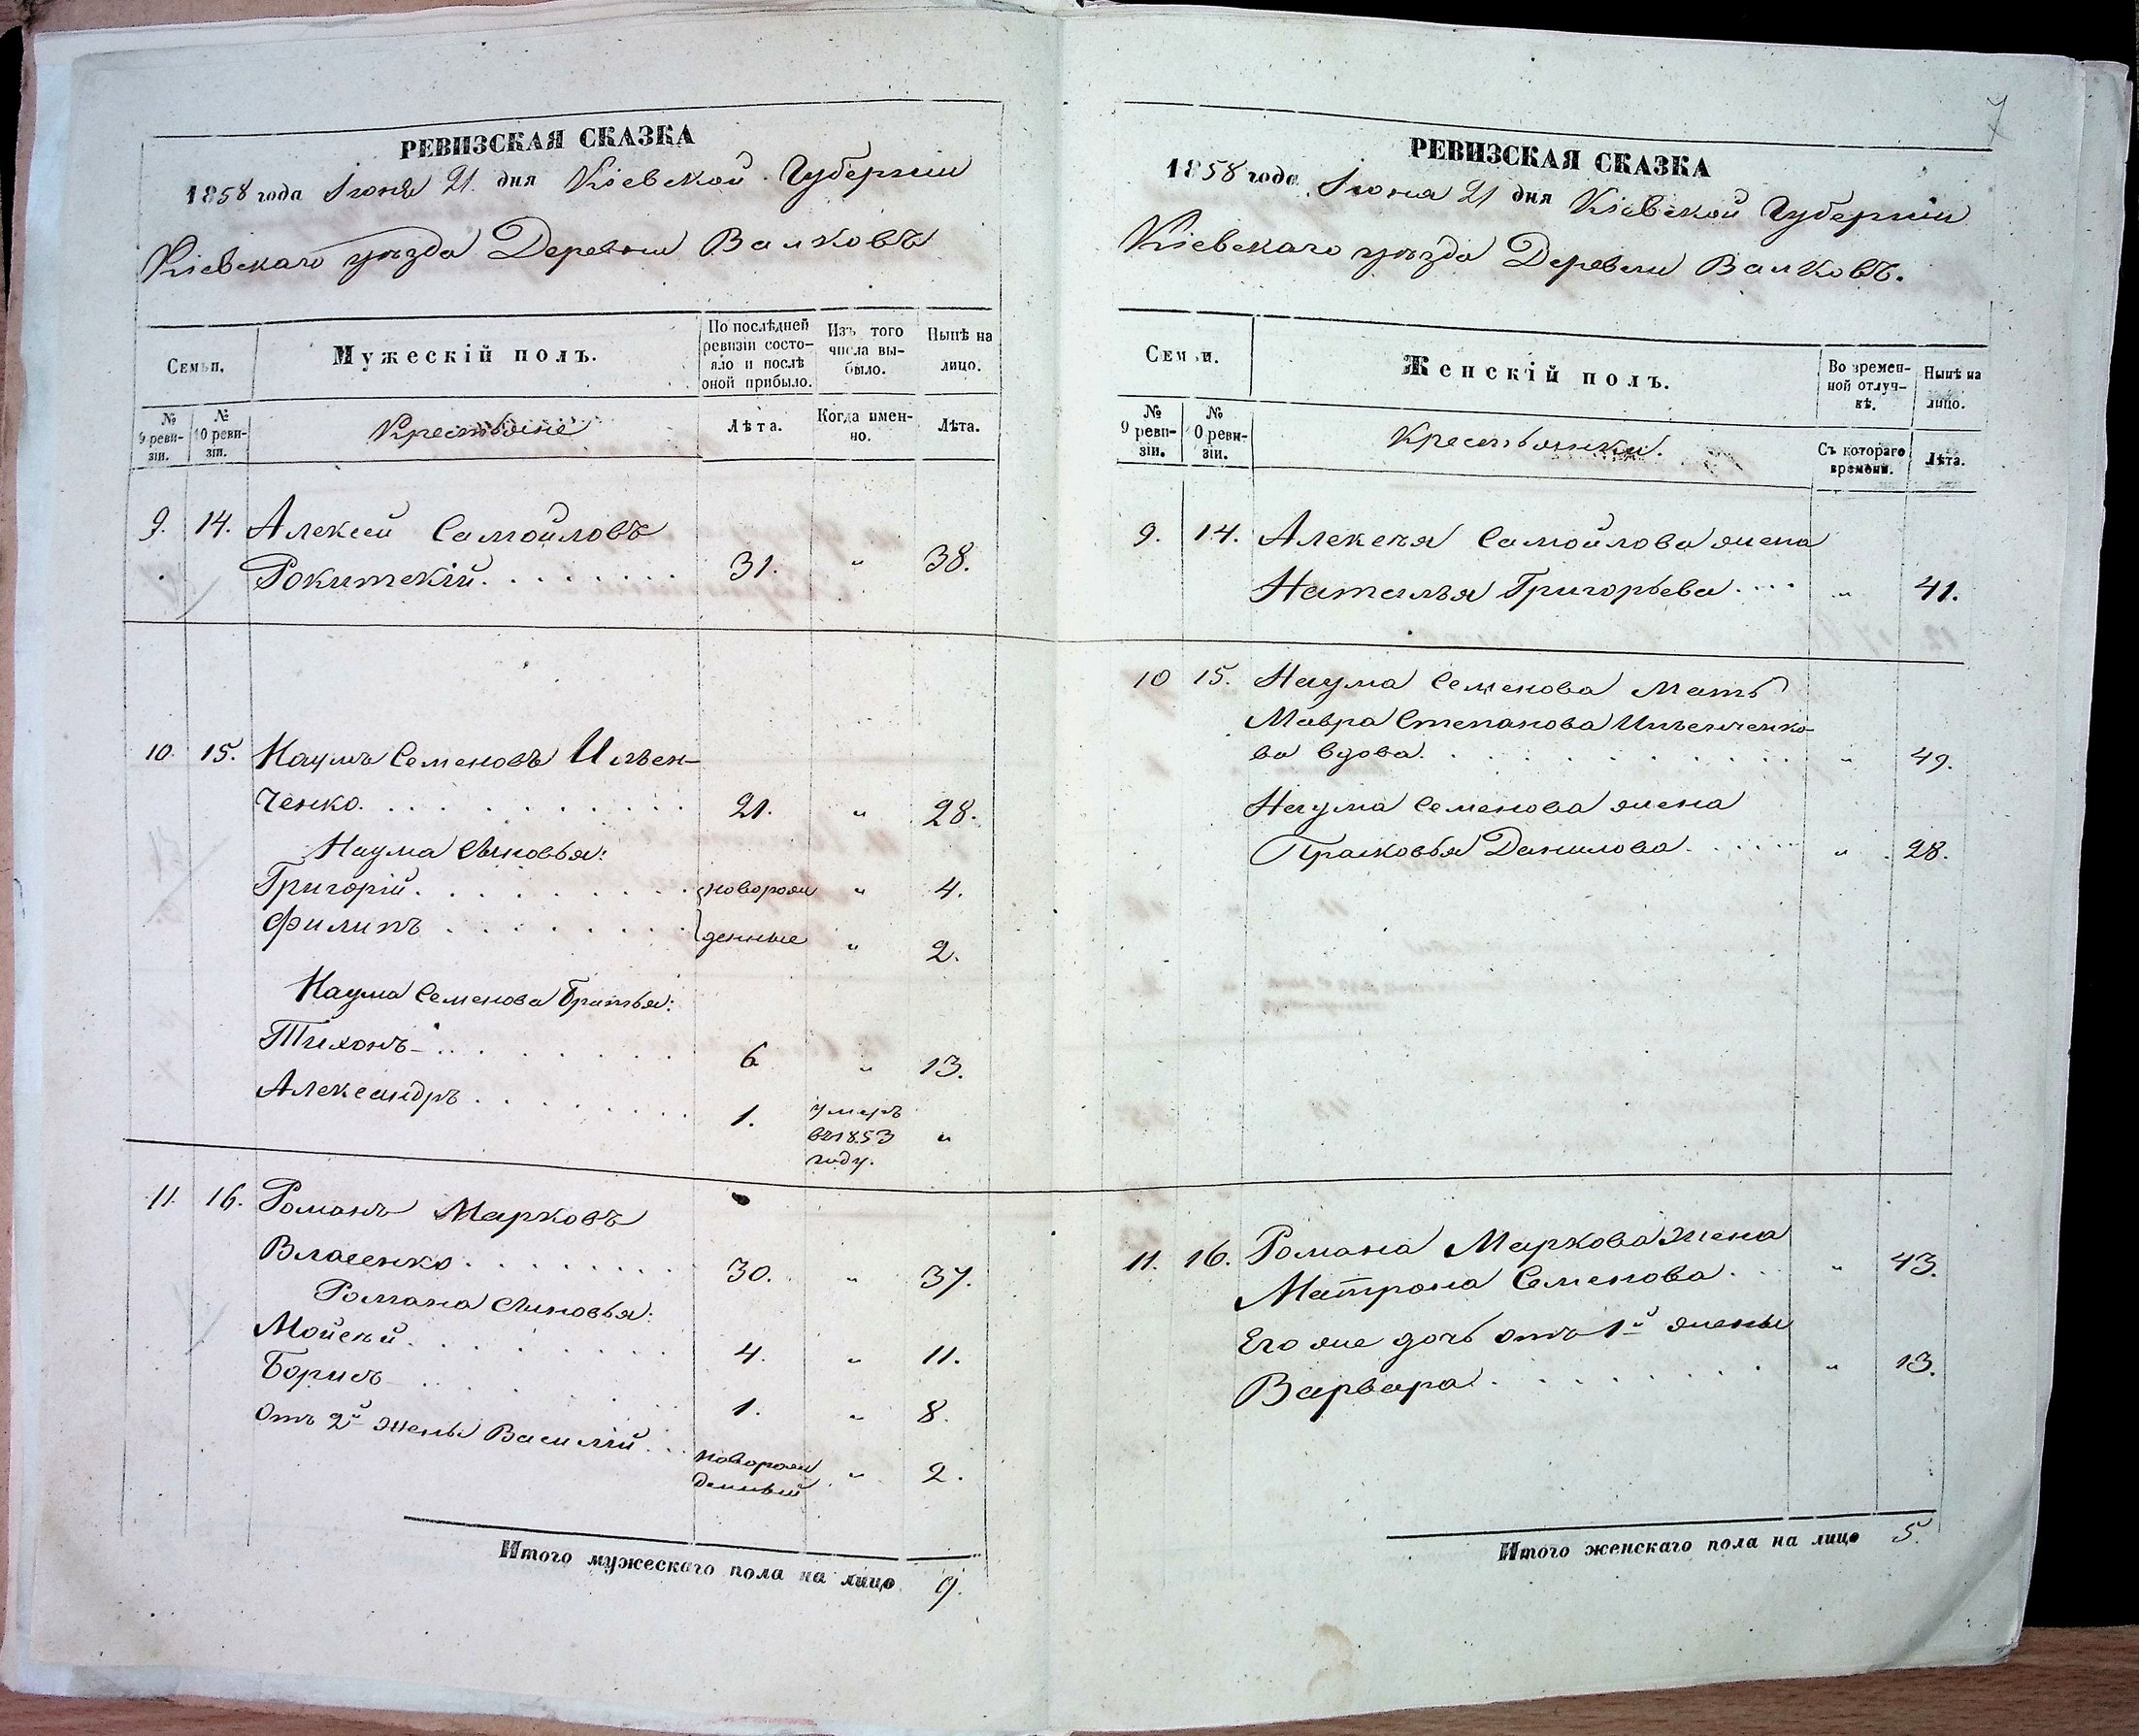 РЕВИЗСКАЯ СКАЗКА
1858 года Іюня 21 дня Кіевской Губерніи
Кіевскаго уѣзда Деревни Валковъ
Семьи.
Мужескій полъ.
По послѣдней ревизіи состояло и послѣ оной прибыло.
Изъ того числа выбыло.
Нынѣ на лицо.
№ 9 ревизіи.
№ 10 ревизіи.
Крестьяне
Лѣта.
Когда именно.
Лѣта.
9. 14. Алексей Самойловъ
Рокитскій. . . . . . . . 31. " 38.
10. 15. Наумъ Семеновъ Ильен-
ченко. . . . . . . . . . 21. " 28.
Наума сыновья:
Григорій. . . . . . . . . новорож " 4.
Филипъ . . . . . . . . денные " 2.
Наума Семенова Братья:
Тихонъ . . . . . . . . 6 " 13.
Александръ . . . . . . . . 1. умеръ
въ 1853 "
году.
11. 16. Романъ Марковъ
Власенко. . . . . . . . 30. " 37.
Романа сыновья:
Мойсей. . . . . . . . 4. " 11.
Борисъ . . . . . . . . 1. " 8.
Отъ 2й жены Василій . . . новорож " 2.
денный
Итого мужескаго пола на лицо 9.
7
РЕВИЗСКАЯ СКАЗКА
1858 года Іюня 21 дня Кіевской Губерніи
Кіевскаго уѣзда Деревни Валковъ.
Семьи.
Женскій полъ.
Во временной отлучкѣ.
Нынѣ на лицо.
№ 9 ревизіи.
№ 0 ревизіи.
Крестьянки.
Съ котораго времени.
Лѣта.
9. 14. Алексѣя Самойлова жена
Наталья Григорьева . . . . " 41.
10 15. Наума Семенова Мать
Мавра Степанова Ильенченко-
ва вдова. . . . . . . . . . " 49.
Наума Семенова жена
Прасковья Данилова . . . . . . " 28.
11. 16. Романа Маркова жена
Матрона Семенова . . . " 43.
Его же дочь отъ 1й жены
Варвара . . . . . . . . " 13.
Итого женскаго пола на лицо 5.